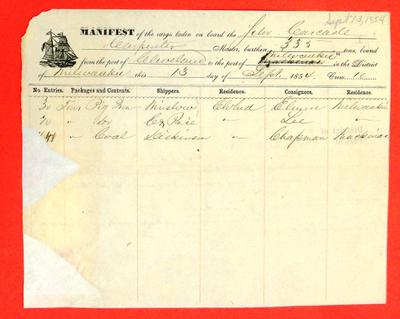 Sept 13, 1854
MANIFEST of the cargo laden on board the Schr Cascade
Carpenter Master, burthen 335 tons, bound
from the port of Cleveland to the port of Milwaukie in the District
of Milwaukie this 13 day of Sept 1854.
No. Entries. Packages and Contents. Shippers. Residence. Consignees. Residence.
30 Tons Pig Iron Winslow Cleveld Milwaukie
20 " do " Lee "
" Coal Dickinson Chapman Mackinac